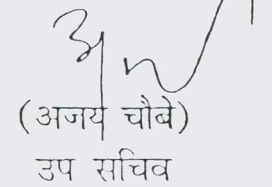 (अजय चौबे)
उप सचिव